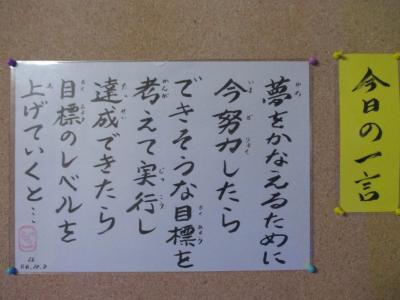 今日の一言
夢をかなえるために
今努力したら
できそうな目標を
考えて実行し
達成できたら
目標のレベルを
上げていくと…